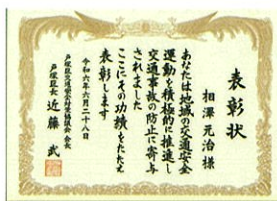 表彰状
相澤元治様
あなたは地域の交通安全
運動を積極的に推進し
交通事故の防止に寄与
されました
ここにその功績をたたえ
表彰します
令和六年六月二十八日
戸塚区交通安全対策協議会 会長
戸塚区長 近藤 武